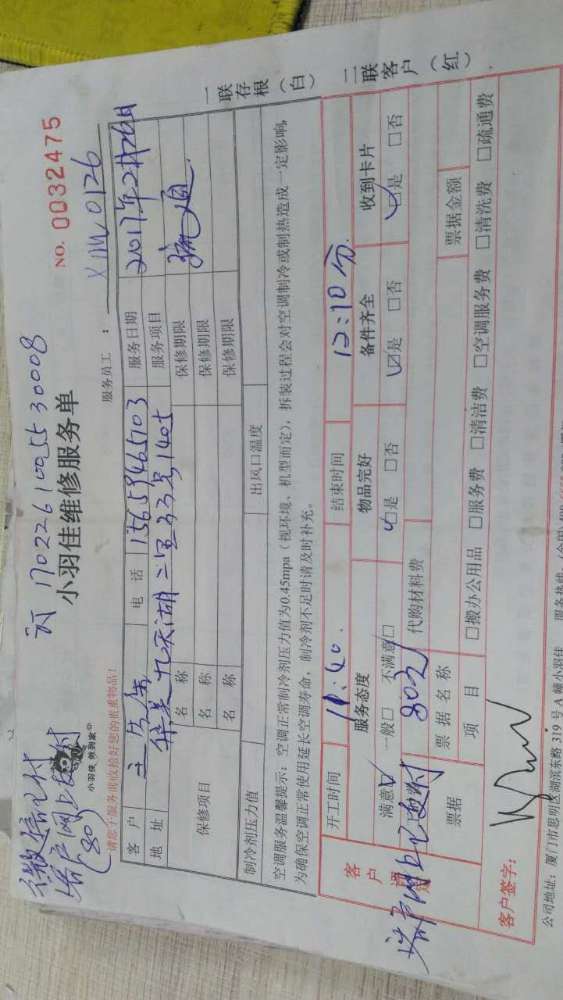 微信已付
客户网上支付
(80)
订 170226100 55 30008
小羽佳维修服务单
NO. 0032475
小羽佳 做到家
请您于服务前收检好您的贵重物品!
服务员工: XIM 0126
客户
电话 13659465103
服务日期 2017年2月26日
地址
二里33号1405
服务项目
保修项目
名称
保修期限
名称
保修期限
名称
保修期限
制冷剂压力值
出风口温度
空调服务温馨提示:空调正常制冷剂压力值为0.45mpa(视环境、机型而定),拆装过程会对空调制冷或制热造成一定影响,
为确保空调正常使用延长空调寿命,制冷剂不足时请及时补充。
一联存根(白) 二联客户(红)
开工时间 11:40.
结束时间 12:10分.
客户
服务态度
物品完好
备件齐全
收到卡片
满意☑ 一般□ 不满意□
☑是 □否
☑是 □否
☑是 □否
客户网上已支付 80元
代购材料费
票据
票据名称
票据金额
项目
□搬办公用品 □服务费 □清洁费 □空调服务费 □清洗费 □疏通费
客户签字:
公司地址:厦门市思明区湖滨东路 319 号 A 幢小羽佳